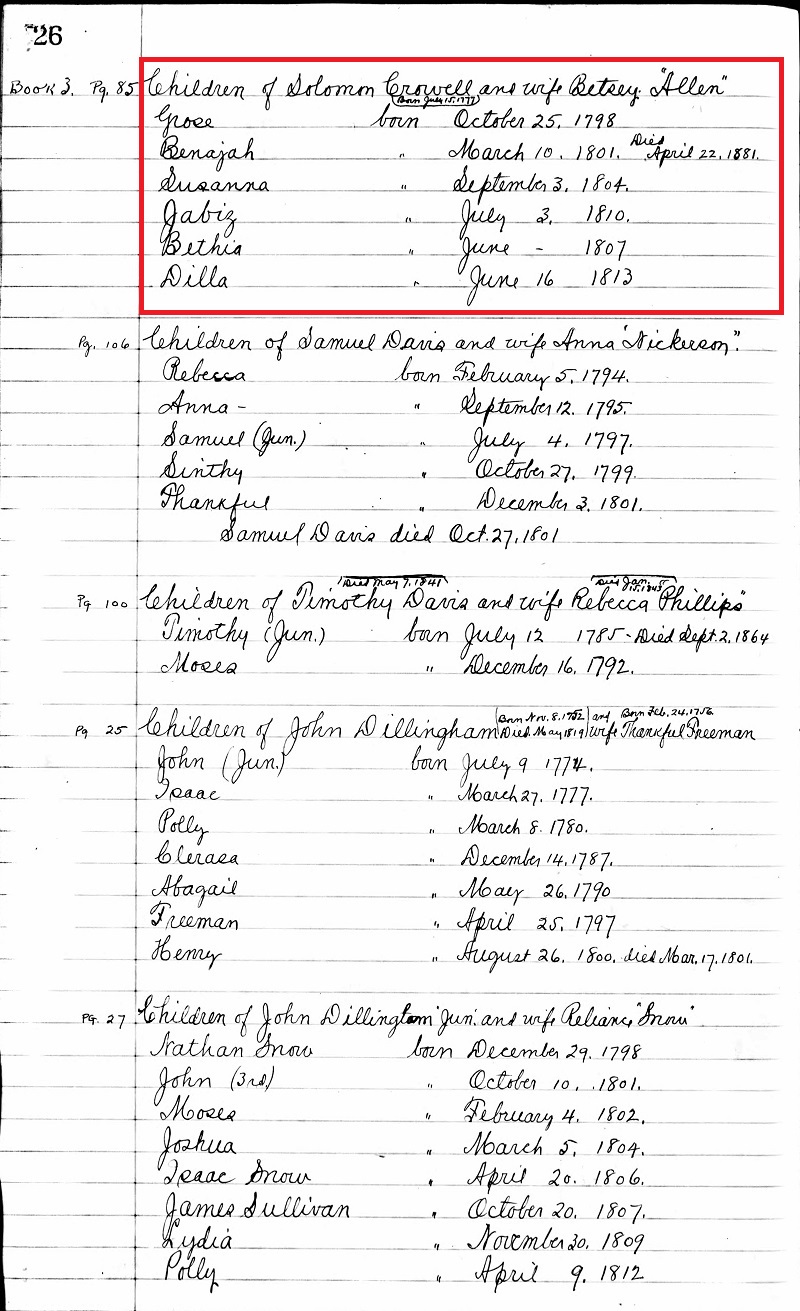 26
Book 3. Pg. 85 Children of Solomon Crowell and wife Betsey "Allen"
(Born July 15, 1777)
Grose born October 25, 1798
Benajah " March 10, 1801. Died April 22, 1881.
Susanna " September 3, 1804.
Jabiz " July 3, 1810.
Bethia " June - 1807
Dilla " June 16 1813
Pg. 106 Children of Samuel Davis and wife Anna "Nickerson".
Rebecca born February 5, 1794.
Anna - " September 12, 1795.
Samuel (Jun.) " July 4, 1797.
Sinthy " October 27, 1799.
Thankful " December 3, 1801.
Samuel Davis died Oct. 27, 1801
Died May 7, 1841 Died Jan. 15, 1845
Pg 100 Children of Timothy Davis and wife Rebecca Phillips"
Timothy (Jun.) born July 12 1785 - Died Sept. 2, 1864
Moses " December 16, 1792.
Pg 25 Children of John Dillingham (Born Nov. 8, 1752 Died May 1819) and wife Thankful Freeman Born Feb. 24, 1756
John (Jun.) born July 9 1774.
Isaac " March 27, 1777.
Polly " March 8, 1780.
Clerasa " December 14, 1787.
Abagail " May 26, 1790
Freeman " April 25, 1797
Henry " August 26, 1800. died Mar. 17, 1801.
Pg. 27 Children of John Dillingham "Jun." and wife Reliance "Snow"
Nathan Snow born December 29, 1798
John (3rd) " October 10, 1801.
Moses " February 4, 1802.
Joshua " March 5, 1804.
Isaac Snow " April 20, 1806.
James Sullivan " October 20, 1807.
Lydia " November 30, 1809
Polly " April 9, 1812